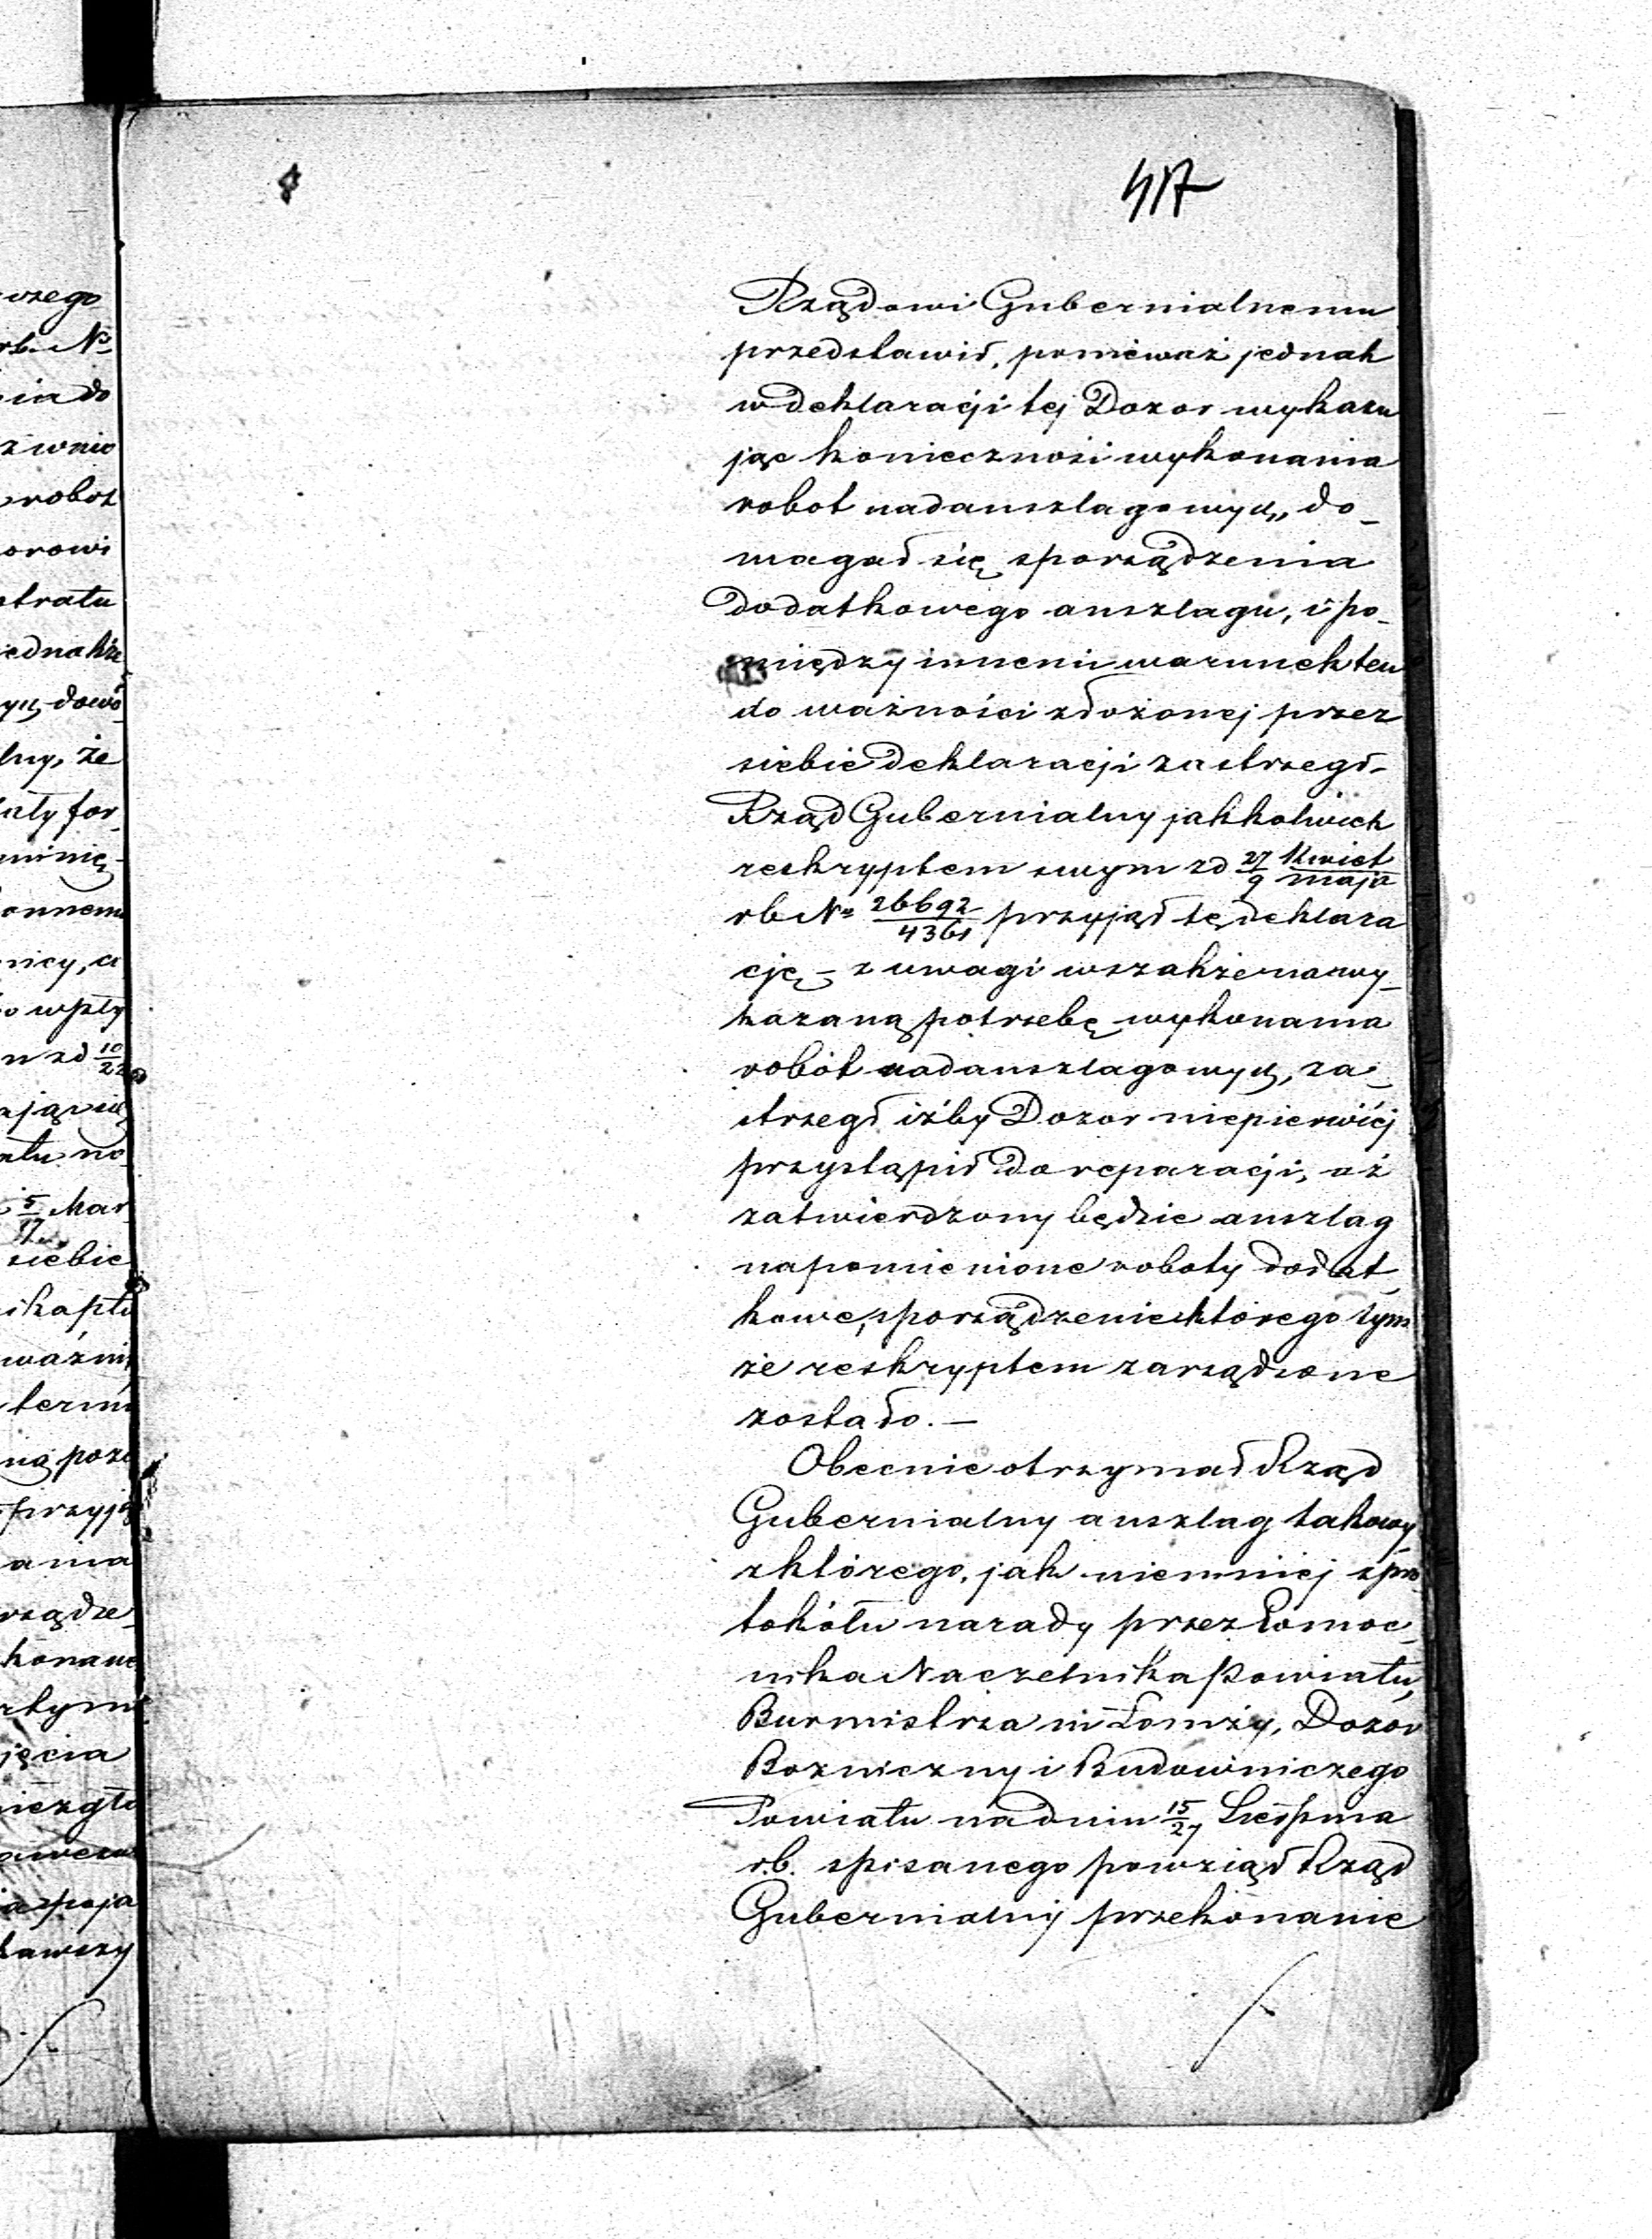 417
Rządowi Gubernialnemu
przedstawił, ponieważ jednak
w deklaracji tej Dozor wykazu
jąc konieczności wykonania
robot nadanszlagowych, do_
magał się sporządzenia
dodatkowego anszlagu, i po_
między innemi warunek ten
do ważności złożonej przez
siebie deklaracji zastrzegł.
Rząd Gubernialny jakkolwiek
reskryptem swym zd 27/9 Kwiet/maja
rb Nº 26692/4361 przyjął tę deklara
cję – z uwagi wszakże na wy_
kazaną potrzebę wykonania
robót nadanszlagowych, za_
strzegł iżby Dozor niepierwiéj
przystąpił do reparacji, aż
zatwierdzony będzie anszlag
na pomienione roboty dodat_
kowe, sporządzenie którego tym
że reskryptem zarządzone
zostało. —
Obecnie otrzymał Rząd
Gubernialny anszlag takowy
z którego, jak niemniej z pro
tokółu narady przez Pomoc_
nika Naczelnika Powiatu,
Burmistrza m Łomży, Dozór
Bozniczny i Budowniczego
Powiatu na dniu 15/27 Sierpnia
r.b. spisanego powziął Rząd
Gubernialny przekonanie